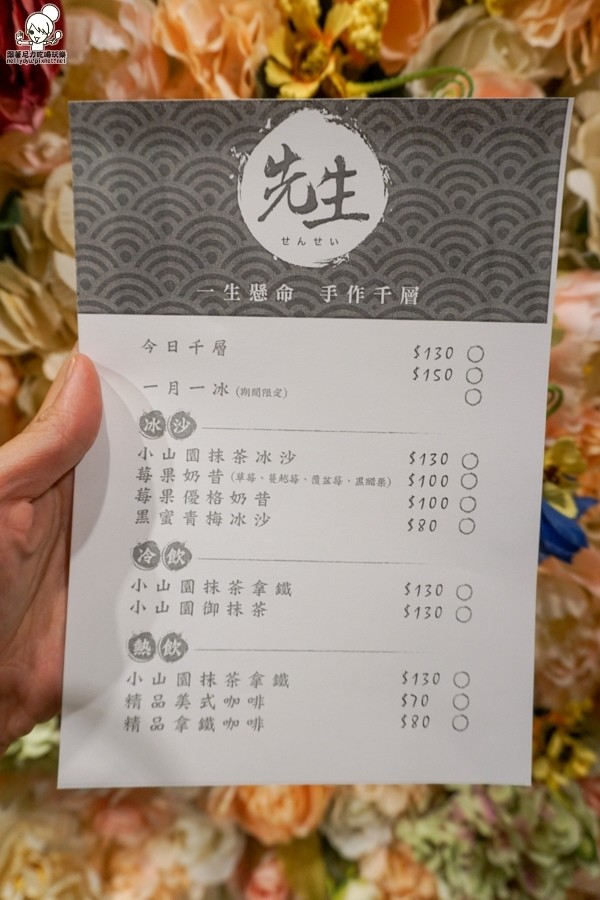 跟著尼力吃喝玩樂
nellydyu.pixnet.net
先生
せんせい
一生懸命 手作千層
今日千層 $130
$150
一月一冰(期間限定)
冰沙
小山園抹茶冰沙 $130
莓果奶昔(草莓、蔓越莓、覆盆莓、黑醋栗) $100
莓果優格奶昔 $100
黑蜜青梅冰沙 $80
冷飲
小山園抹茶拿鐵 $130
小山園御抹茶 $130
熱飲
小山園抹茶拿鐵 $130
精品美式咖啡 $70
精品拿鐵咖啡 $80